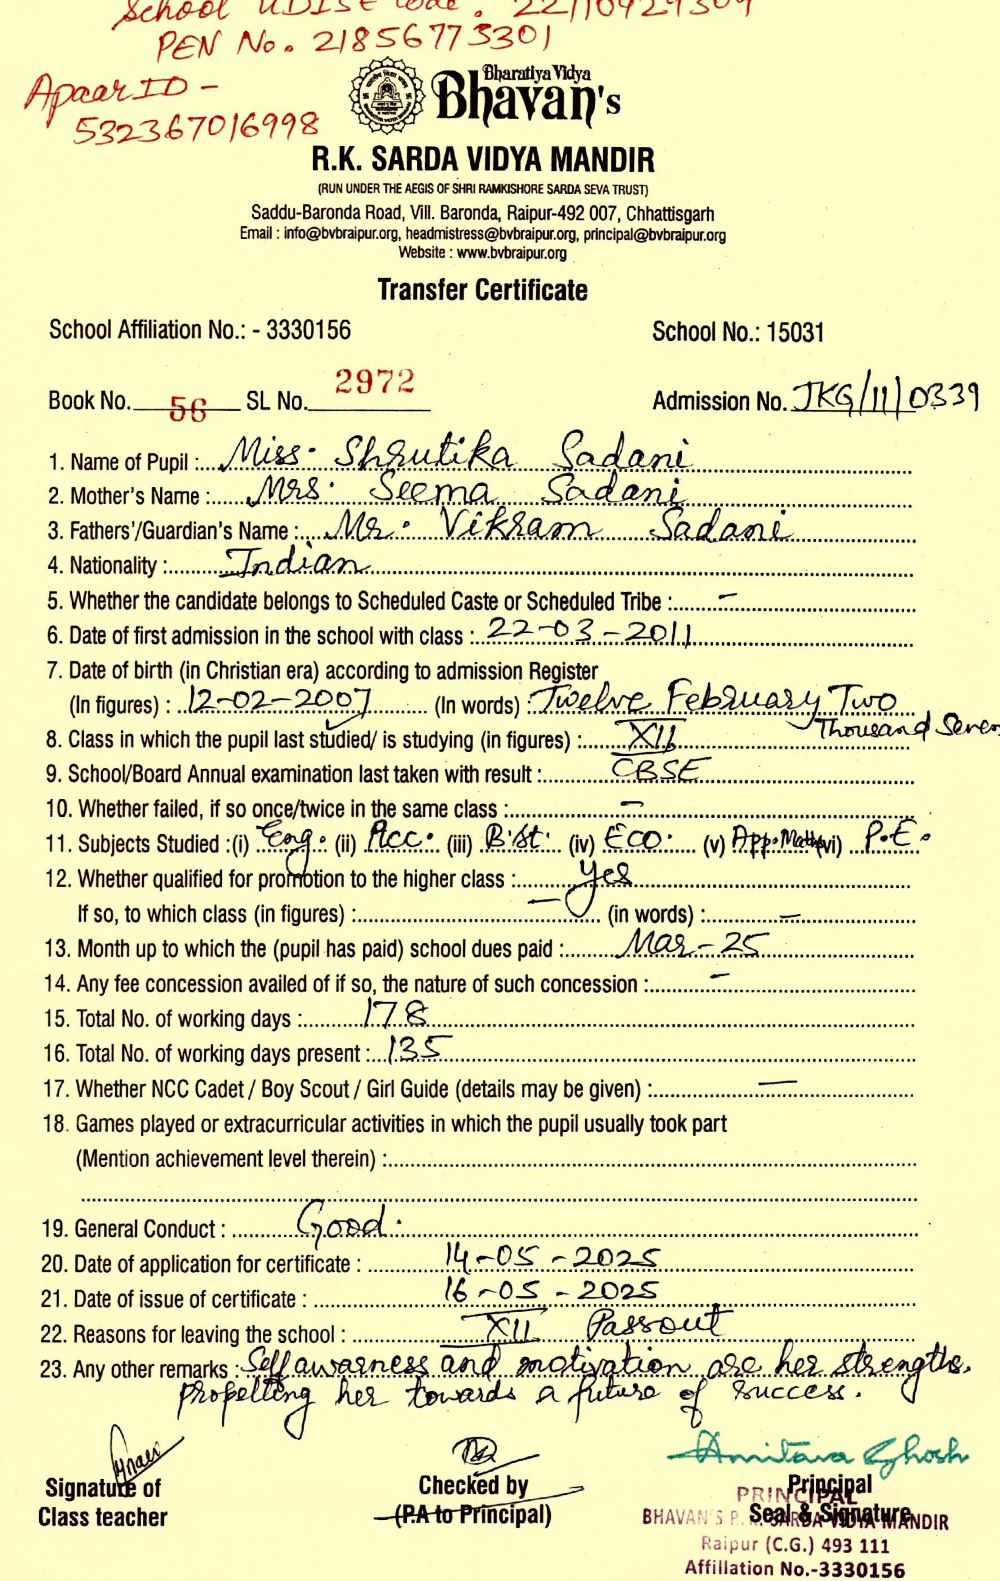 School UDISE Code. 22110429309
PEN No. 21856775301
Apaar ID -
532367016998
Bharatiya Vidya
Bhavan's
R.K. SARDA VIDYA MANDIR
(RUN UNDER THE AEGIS OF SHRI RAMKISHORE SARDA SEVA TRUST)
Saddu-Baronda Road, Vill. Baronda, Raipur-492 007, Chhattisgarh
Email : info@bvbraipur.org, headmistress@bvbraipur.org, principal@bvbraipur.org
Website : www.bvbraipur.org
Transfer Certificate
School Affiliation No.: - 3330156 School No.: 15031
Book No. 56 SL No. 2972 Admission No. JKG/11/0339
1. Name of Pupil : Miss. Shrutika Sadani
2. Mother's Name : Mrs. Seema Sadani
3. Fathers'/Guardian's Name : Mr. Vikram Sadani
4. Nationality : Indian
5. Whether the candidate belongs to Scheduled Caste or Scheduled Tribe : -
6. Date of first admission in the school with class : 22-03-2011
7. Date of birth (in Christian era) according to admission Register
(In figures) : 12-02-2007 (In words) : Twelve February Two
Thousand Seven
8. Class in which the pupil last studied/ is studying (in figures) : XII
9. School/Board Annual examination last taken with result : CBSE
10. Whether failed, if so once/twice in the same class : -
11. Subjects Studied :(i) Eng. (ii) Acc. (iii) B.St. (iv) Eco. (v) App. Maths (vi) P.E.
12. Whether qualified for promotion to the higher class : Yes
If so, to which class (in figures) : - (in words) : -
13. Month up to which the (pupil has paid) school dues paid : Mar-25
14. Any fee concession availed of if so, the nature of such concession : -
15. Total No. of working days : 178
16. Total No. of working days present : 135
17. Whether NCC Cadet / Boy Scout / Girl Guide (details may be given) : -
18. Games played or extracurricular activities in which the pupil usually took part
(Mention achievement level therein) :
19. General Conduct : Good.
20. Date of application for certificate : 14-05-2025
21. Date of issue of certificate : 16-05-2025
22. Reasons for leaving the school : XII Passout
23. Any other remarks : Self awarness and motivation are her strengths,
propelling her towards a future of success.
Amitava Ghosh
Signature of Checked by Principal
Class teacher (P.A to Principal) Seal & Signature
PRINCIPAL
BHAVAN'S R. K. SARDA VIDYA MANDIR
Raipur (C.G.) 493 111
Affillation No.-3330156